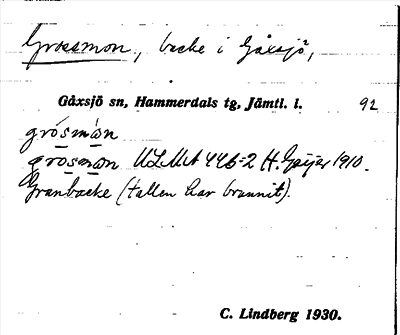 Grossmon, backe i Gåxsjö,
Gåxsjö sn, Hammerdals tg, Jämtl. l. 92
grósmàn
grosmon ULMA 446:2 H. Geijer 1910.
Granbacke (tallen har brunnit).
C. Lindberg 1930.